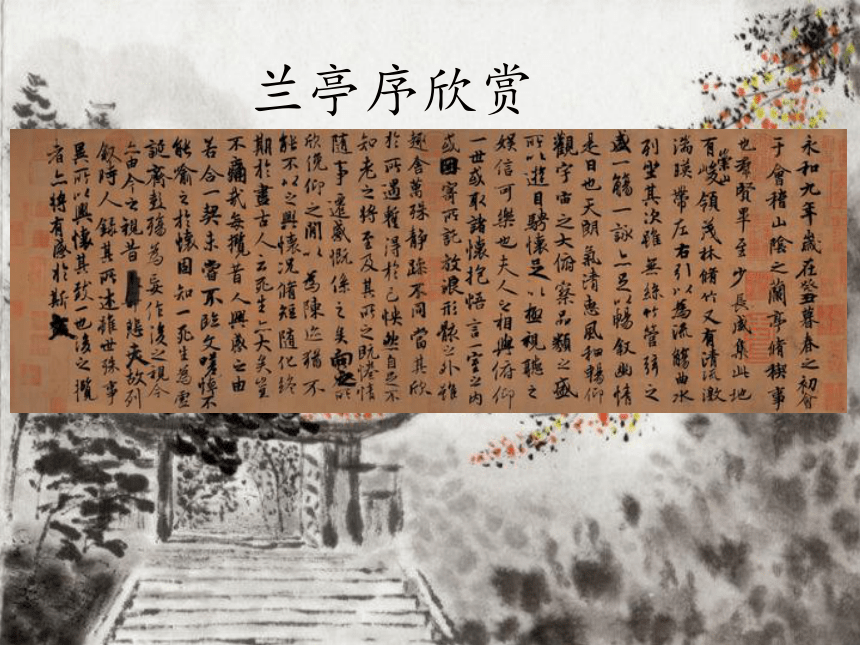 兰亭序欣赏
永和九年歲在癸丑暮春之初會
于會稽山陰之蘭亭脩稧事
也羣賢畢至少長咸集此地
有崇山峻領茂林脩竹又有清流激
湍暎帶左右引以為流觴曲水
列坐其次雖無絲竹管弦之
盛一觴一詠亦足以暢叙幽情
是日也天朗氣清惠風和暢仰
觀宇宙之大俯察品類之盛
所以遊目騁懷足以極視聽之
娛信可樂也夫人之相與俯仰
一世或取諸懷抱悟言一室之內
或因寄所託放浪形骸之外雖
趣舍萬殊靜躁不同當其欣
於所遇蹔得於己怏然自足不
知老之將至及其所之既惓情
隨事遷感慨係之矣向之所
欣俛仰之閒以為陳迹猶不
能不以之興懷況脩短隨化終
期於盡古人云死生亦大矣豈
不痛哉每攬昔人興感之由
若合一契未嘗不臨文嗟悼不
能喻之於懷固知一死生為虛
誕齊彭殤為妄作後之視今
亦由今之視昔悲夫故列
叙時人錄其所述雖世殊事
異所以興懷其致一也後之攬
者亦將有感於斯文